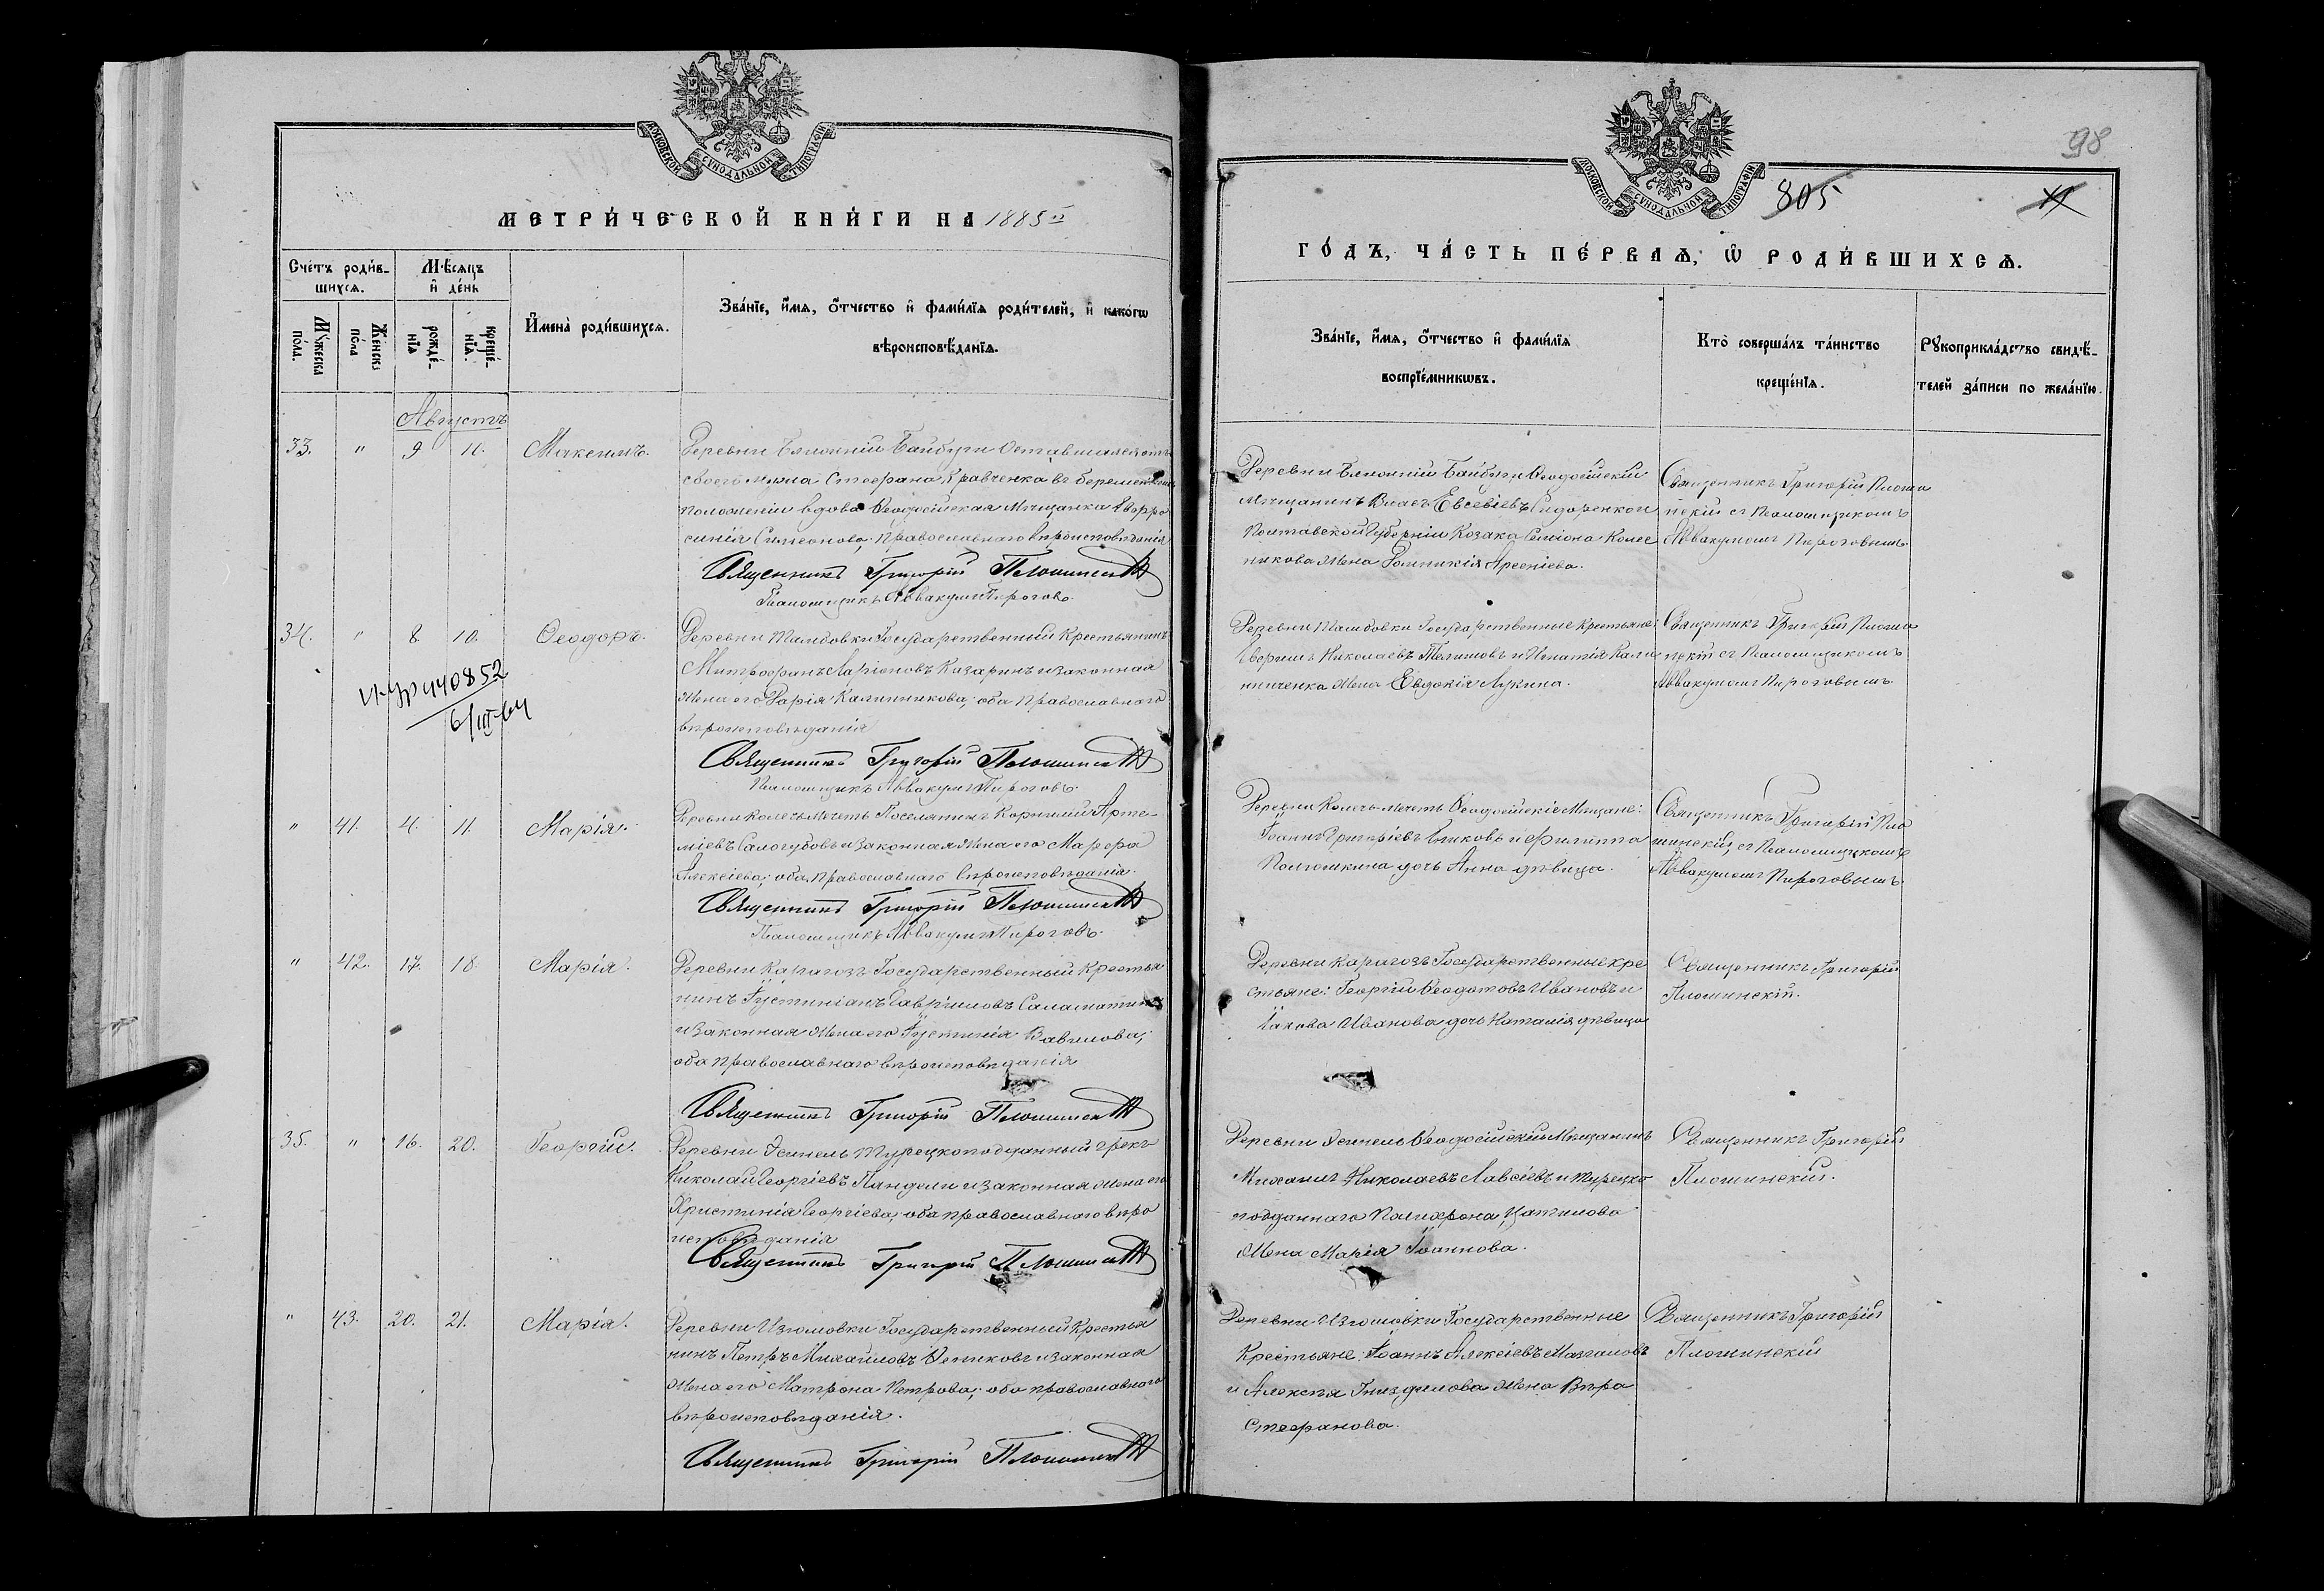 МОСКОВСКОЙ СѴНОДАЛЬНОЙ ТИПОГРАФІИ
МЕТРИ́ЧЕСКОЙ КНИ́ГИ НА 1885й
Сче́тъ роди́вшихся.
Мѣ́сяцъ и҆ де́нь
И҆мена̀ роди́вшихся.
Зва́нїе, и҆́мѧ, ѻ҆́тчество и҆ фами́лїѧ роди́телей, и҆ како́гѡ
вѣроисповѣ́данїѧ.
Мꙋ́жеска по́ла.
Же́нска по́ла
рожде́нїѧ
креще́нїѧ.
Августъ
33. " 9 11. Максимъ.
Деревни Ближній Байбуги Оставшаяся отъ
своего мужа Стефана Кравченка въ беременномъ
положеніи вдова Ѳеодосійская Мѣщанка Евфро
синія Симеонова; православнаго вѣроисповѣданія
Священникъ Григорій Плошинскій
Псаломщикъ Аввакумъ Пироговъ.
34. " 8 10. Ѳеодоръ.
Деревни Тамбовки Государственный Крестьянинъ
Митрофанъ Ларіоновъ Казаринъ и законная
жена его Дарія Калинникова; оба православнаго
вѣроисповѣданія
Священникъ Григорій Плошинскій
Псаломщикъ Аввакумъ Пироговъ.
440852
6/III-64
" 41. 4. 11. Марія.
Деревни Колечь-Мечеть Поселянинъ Корнилій Арте-
міевъ Салогубовъ и законная жена его Марфа
Алексіева; оба православнаго вѣроисповѣданія.
Священникъ Григорій Плошинскій
Псаломщикъ Аввакумъ Пироговъ.
" 42. 17. 18. Марія.
Деревни Карагозъ Государственный Крестья
нинъ Іустиніанъ Гавріиловъ Саламатинъ
и законная жена его Іустинія Вавилова;
оба православнаго вѣроисповѣданія
Священникъ Григорій Плошинскій
35. " 16. 20. Георгій.
Деревни Эсинель Турецкоподданный грекъ
Николай Георгіевъ Пандели и законная жена его
Христинія Георгіева; оба православнаго вѣро
исповѣданія
Священникъ Григорій Плошинскій
" 43. 20. 21. Марія.
Деревни Изюмовки Государственный Крестья
нинъ Петръ Михаиловъ и законная
жена его Матрона Петрова; оба православнаго
вѣроисповѣданія.
Священникъ Григорій Плошинскій
98
МОСКОВСКОЙ СѴНОДАЛЬНОЙ ТИПОГРАФІИ
805
ГО́ДЪ, ЧА́СТЬ ПЕ́РВАѦ, Ѡ҆ РОДИ́ВШИХСѦ.
Зва́нїе, и҆́мѧ, ѻ҆́тчество и҆ фами́лїѧ
воспрїе́мникѡвъ.
Кто̀ соверша́лъ та́инство
креще́нїѧ.
Рꙋкоприкла́дство свидѣ́-
телей за́писи по жела́нїю.
Деревни Ближній Байбуги Ѳеодосійскій
Мѣщанинъ Власъ Евсевіевъ Сидоренко и
Полтавской Губерніи Козака Симіона Колес
никова жена Домникія Арсеніева.
Священникъ Григорій Плоши
нскій съ Псаломщикомъ
Аввакумомъ Пироговымъ.
Деревни Тамбовки Государственные крестьяне:
Северинъ Николаевъ и Игнатія Кали
ниченка жена Евдокія Лукина.
Священникъ Григорій Плоши
нскій съ Псаломщикомъ
Аввакумомъ Пироговымъ.
Деревни Колечь-мечеть Ѳеодосійскіе Мѣщане:
Іоаннъ Григоріевъ Быковъ и Филиппа
Полюшкина дочь Анна дѣвица.
Священникъ Григорій Пло
шинскій, съ Псаломщикомъ
Аввакумомъ Пироговымъ.
Деревни Карагозъ Государственные кре
стьяне: Георгій Ѳеодотовъ Ивановъ и
Іакова Иванова дочь Наталія дѣвица
Священникъ Григорій
Плошинскій.
Деревни Эсинель Ѳеодосійскій Мѣщанинъ
Михаилъ Николаевъ Лавсіевъ и турецко
подданнаго
жена Марія Іоаннова.
Священникъ Григорій
Плошинскій.
Деревни Изюмовки Государственные
Крестьяне: Іоаннъ Алексіевъ
и Алексѣя Гнездилова жена Вѣра
Стефанова.
Священникъ Григорій
Плошинскій